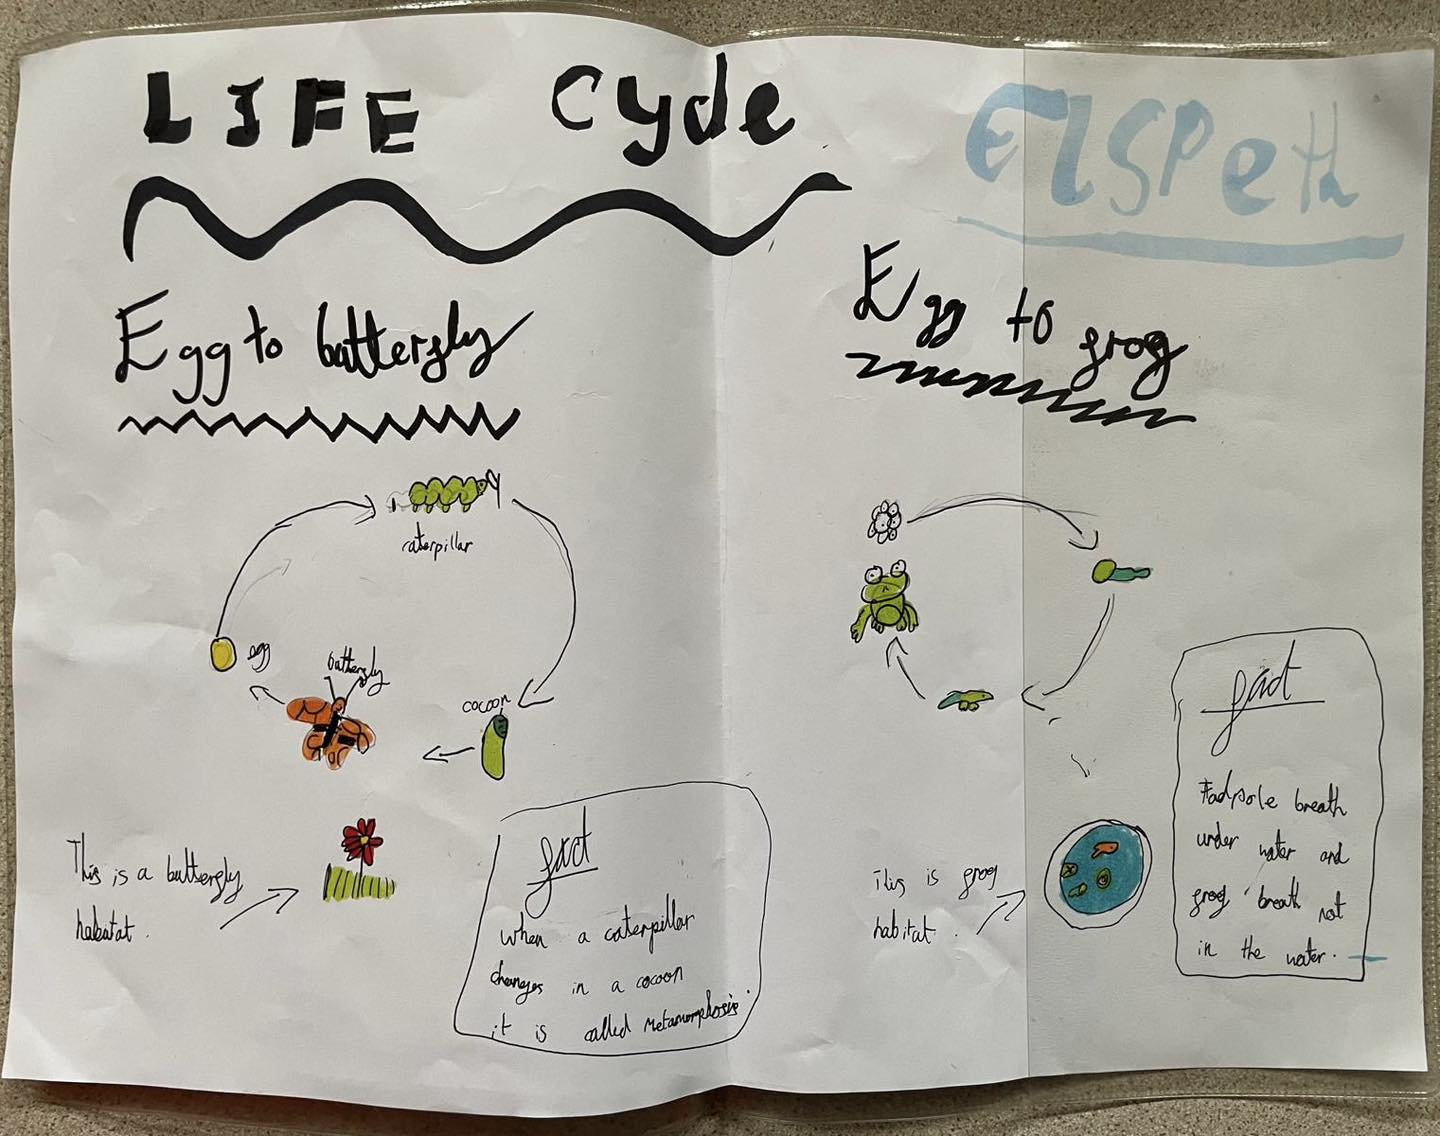 LIFE Cycle
Elspeth
Egg to butterfly
caterpillar
egg
butterfly
cocoon
This is a butterfly
habatat.
fact
when a caterpillar
changes in a cocoon
it is called metamorphosis.
Egg to frog
This is frog
habitat.
fact
Tadpole breath
under water and
frog breath not
in the water.